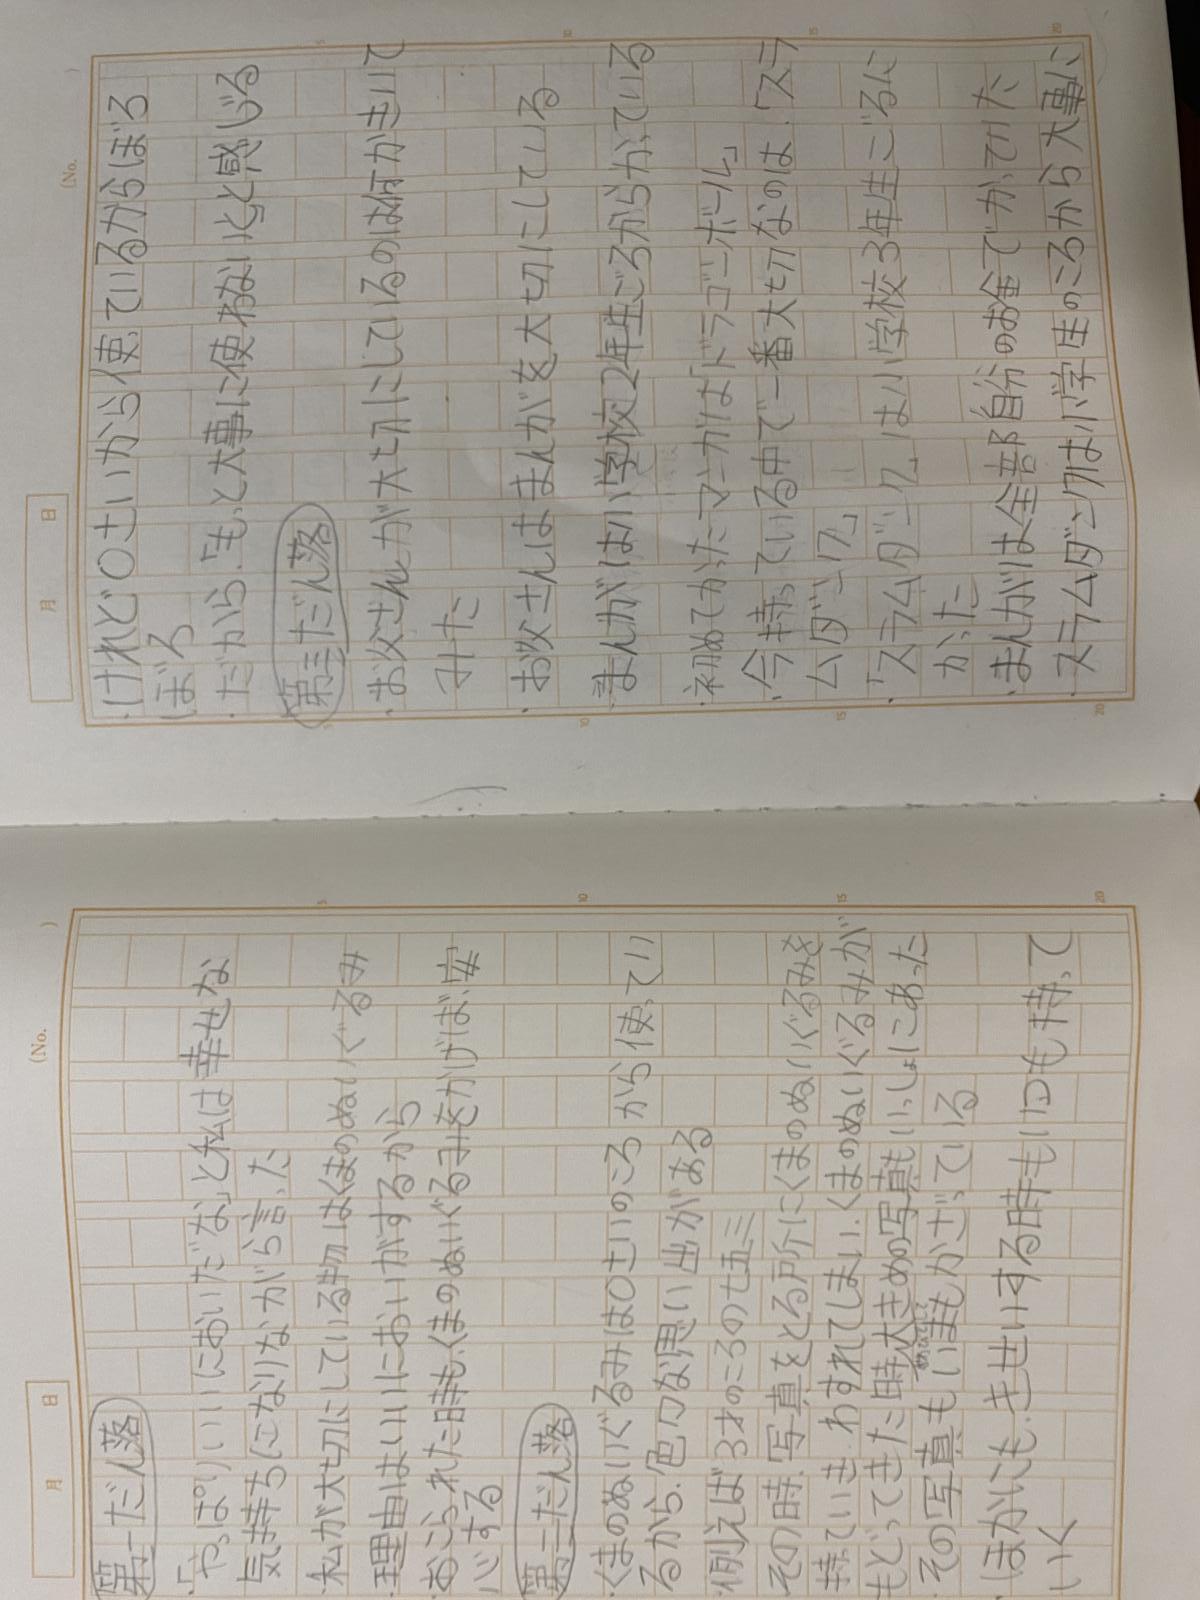 第一だん落
・「やっぱりいいにおいだな」と私は幸せな
気持ちになりながら言った
・私が大切にしている物はくまのぬいぐるみ
・理由はいいにおいがするから
・おこられた時も、くまのぬいぐるみをかげば、安
心する
第二だん落
・くまのぬいぐるみは0さいのころから使ってい
るから、色々な思い出がある
・例えば3才のころの七五三
・その時、写真をとる所にくまのぬいぐるみを
持っていき、わすれてしまい、くまのぬいぐるみが
もどってきた時大きめの写真もいっしょにあった
・その写真もいまもかざっている
・ほかにも、きせいする時もいつも持って
いく
(No.
)
月
日
5
10
15
20
・けれど0さいから使っているからぼろ
ぼろ
・だから、「もっと大事に使わないと」と感じる
第三だん落
・お父さんが大切にしているのは何かきいて
みた
・お父さんはまんがを大切にしている
・まんがは小学校2年生ごろからかっている
・初めてかったマンガは「ドラゴンボール」
・今持っている中で一番大切なのは、「スラ
ムダンク」
・「スラムダンク」は小学校3年生ごろに
かった
・まんがは全部自分のお金でかってた
・スラムダンクは小学生のころから大事に
(No.
)
月
日
5
10
15
20